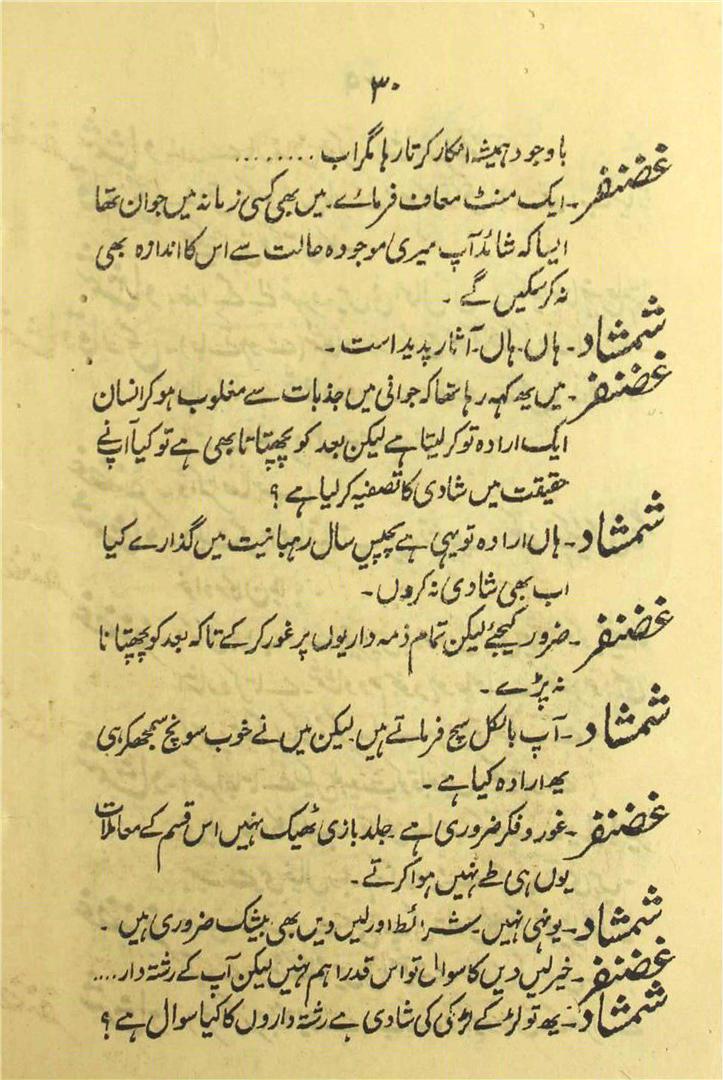 ۳۰
باوجود ہمیشہ انکار کرتا رہا مگر اب ........
غضنفر۔ ایک منٹ معاف فرمائے۔ میں بھی کسی زمانہ میں جوان تھا
ایسا کہ شائد آپ میری موجودہ حالت سے اس کا اندازہ بھی
نہ کر سکیں گے۔
شمشاد۔ ہاں۔ ہاں۔ آثار پدید است۔
غضنفر۔ میں یھ کہہ رہا تھا کہ جوانی میں جذبات سے مغلوب ہو کر انسان
ایک ارادہ تو کر لیتا ہے لیکن بعد کو پچھتاتا بھی ہے تو کیا آپنے
حقیقت میں شادی کا تصفیہ کر لیا ہے ؟
شمشاد۔ ہاں ارادہ تو یہی ہے پچیس سال رہبانیت میں گذارے کیا
اب بھی شادی نہ کروں۔
غضنفر۔ ضرور کیجئے لیکن تمام ذمہ داریوں پر غور کر کے تاکہ بعد کو پچھتانا
نہ پڑے۔
شمشاد۔ آپ بالکل سچ فرماتے ہیں۔ لیکن میں نے خوب سونچ سمجھکر ہی
یھ ارادہ کیا ہے۔
غضنفر۔ غور و فکر ضروری ہے جلد بازی ٹھیک نہیں اس قسم کے معاملات
یوں ہی طے نہیں ہوا کرتے۔
شمشاد۔ یونہی نہیں۔ شرائط اور لیں دیں بھی بیشک ضروری ہیں۔
غضنفر۔ خیر لیں دیں کا سوال تو اس قدر اہم نہیں لیکن آپ کے رشتہ دار....
شمشاد۔ یھ تو لڑکے لڑکی کی شادی ہے رشتہ داروں کا کیا سوال ہے ؟